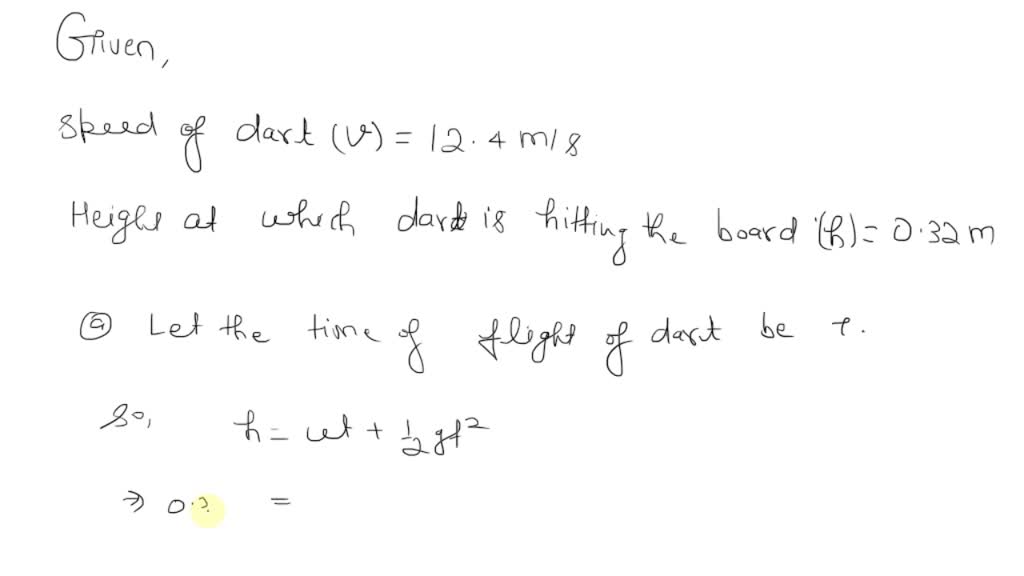 Given,
Speed of dart (v) = 12.4 m/s
Height at which dart is hitting the board (h) = 0.32 m
ⓐ Let the time of flight of dart be t.
So, h = ut + 1/2 gt²
⇒ 0.3 =